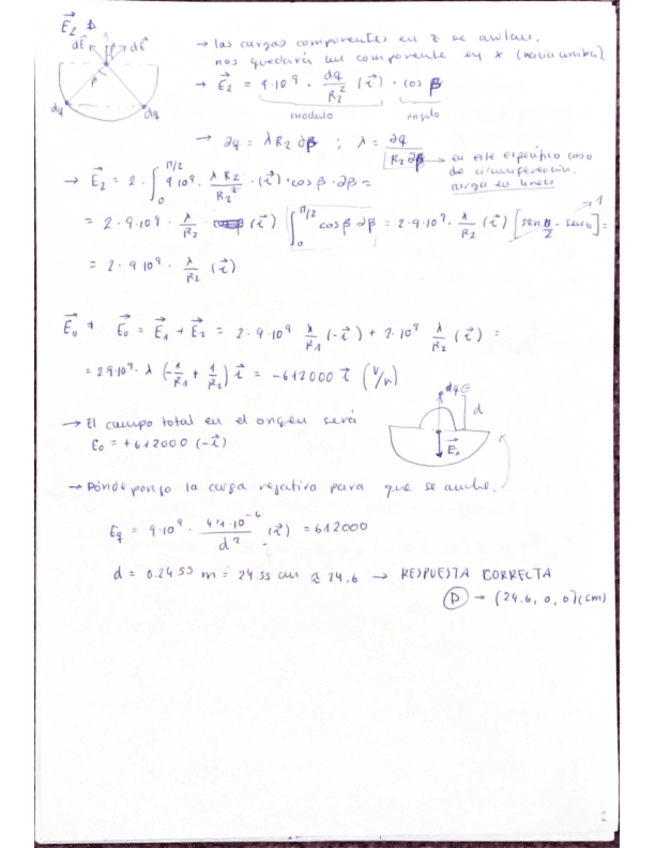 E⃗₂
dE⃗ dE⃗
β
dq dq
→ las cargas componentes en z se anulan.
nos quedará un componente en x (hacia arriba).
→ E⃗₂ = 9·10⁹ · dq/R₂² (i⃗) · cos β
módulo ángulo
→ ∂q = λR₂∂β ; λ = ∂q/R₂∂β → en este específico caso
de circunferencia.
carga en línea
→ E⃗₂ = 2 · ∫₀^π/2 9·10⁹ · λR₂/R₂² · (i⃗) · cos β · ∂β =
1
= 2·9·10⁹ · λ/R₂ · (i⃗) ∫₀^π/2 cos β ∂β = 2·9·10⁹ · λ/R₂ (i⃗) [sen π/2 - sen 0] =
= 2·9·10⁹ · λ/R₂ (i⃗)
E⃗₀ E⃗₀ = E⃗₁ + E⃗₂ = 2·9·10⁹ λ/R₁ (-i⃗) + 2·10⁹ λ/R₂ (i⃗) =
= 2·9·10⁹ · λ (-1/R₁ + 1/R₂) i⃗ = -612000 i⃗ (V/m)
dq⊖
d
→ El campo total en el origen será
E₀ = +612000 (-i⃗)
E⃗₀
→ Dónde pongo la carga negativa para que se anule.
E_q = 9·10⁹ · 4'1·10⁻⁶/d² (i⃗) = 612000
d = 0.2455 m = 24.55 cm ≈ 24,6 → RESPUESTA CORRECTA
D → (24.6, 0, 0)(cm)
2